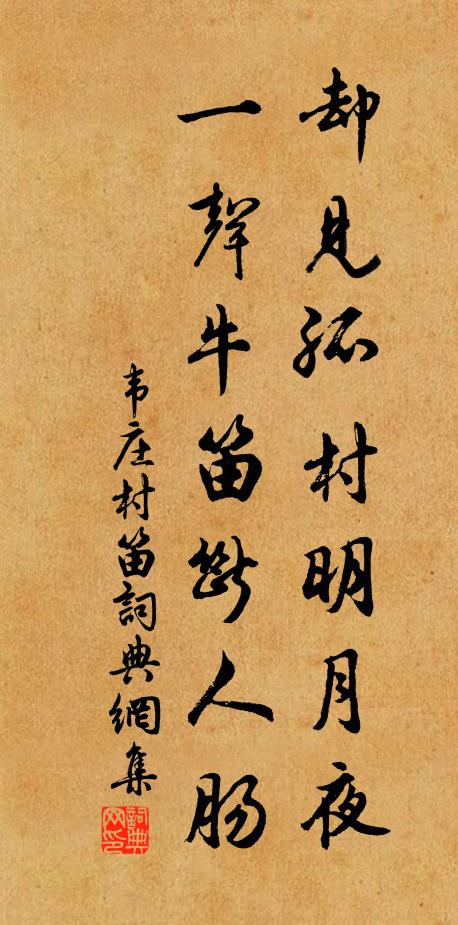 却見孤村明月夜
一聲牛笛斷人肠
韦庄村笛詞典網集
詞典网印